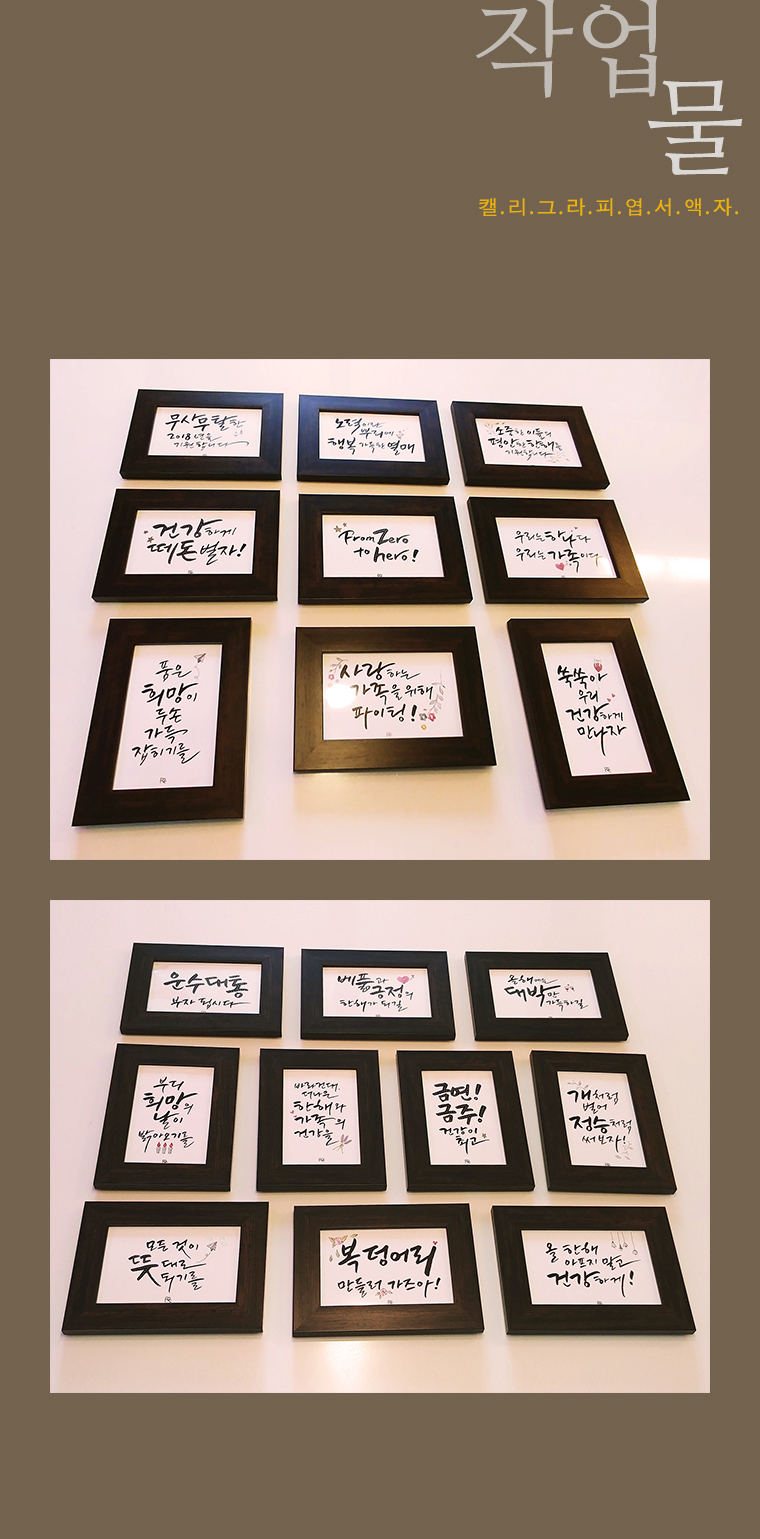 작업
물
캘.리.그.라.피.엽.서.액.자.
무사무탈한
2018년을
기원합니다
노력이란
뿌리에
행복 가득한 열매
소중한 이들의
평안한 한해를
기원합니다
건강하게
떼돈벌자!
From Zero
to hero!
우리는 하나다
우리는 가족이다
품은
희망이
두손
가득
잡히기를
사랑하는
가족을 위해
파이팅!
쑥쑥아
우리
건강하게
만나자
운수대통
부자 됩시다
베풂과
긍정의
한해가 되길
올해에는
대박만
가득하길
부디
희망의
날이
밝아오기를
바라건대,
더나은
한해와
가족의
건강을
금연!
금주!
건강이
최고
개처럼
벌어
정승처럼
써보자!
모든 것이
뜻대로
되기를
복덩어리
만들러 가즈아!
올 한해
아프지 말고
건강하게!